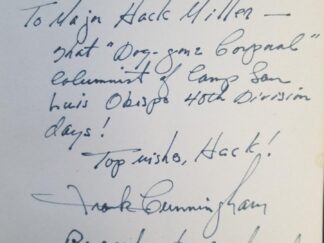 To Major Hack Miller —
that "Dog-gone Corporal"
columnist of Camp San
Luis Obispo 40th Division
days!
Top wishes, Hack!
Frank Cunningham